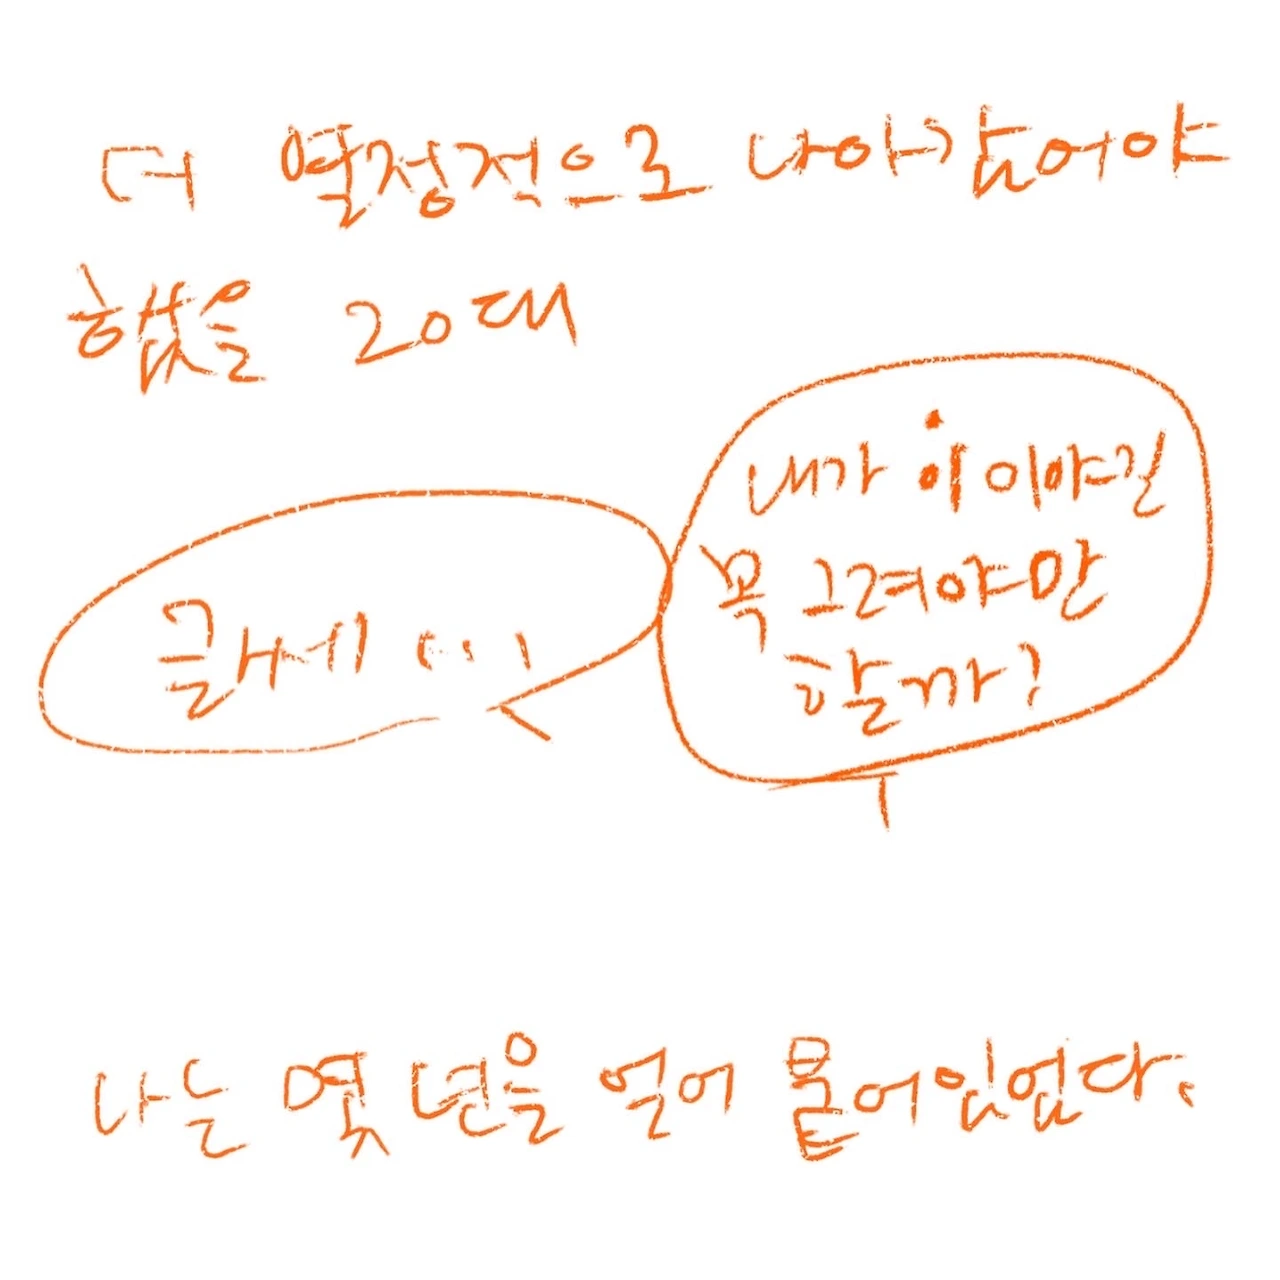 더 열정적으로 나아갔어야
했을 20대
내가 이 이야길
꼭 그려야만
할까?
글쎄...
나는 몇 년을 얼어 붙어있었다.